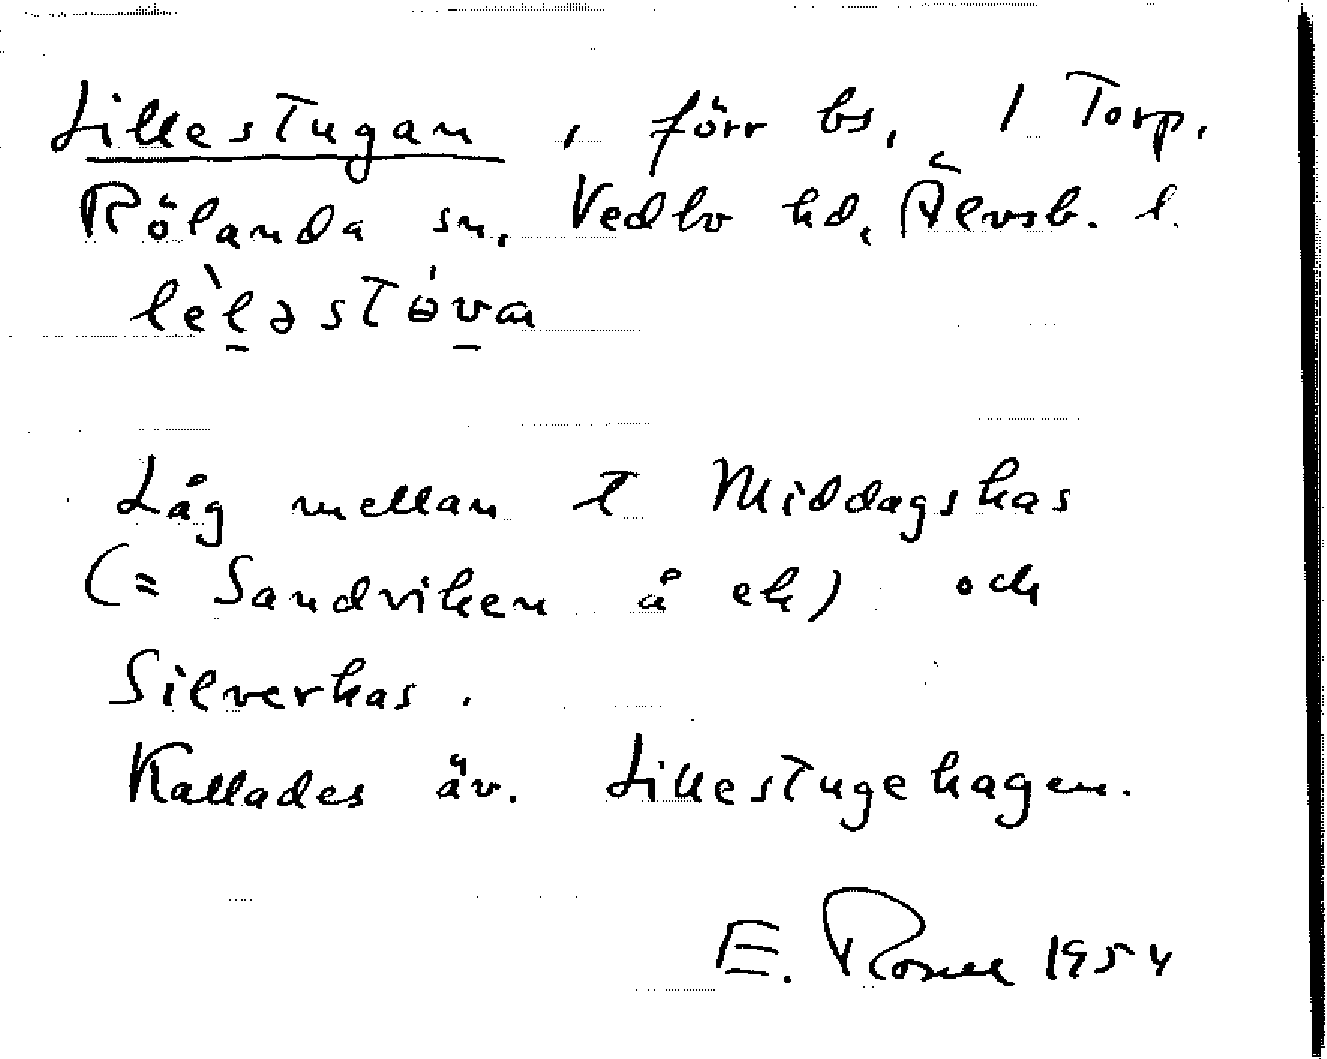 Lillestugan, förr bs, 1 Torp.
Rölanda sn, Vedbo hd, Älvsb. l.
lèləstɵ́va
Låg mellan t Middagskas
(= Sandviken å ek) och
Silverkas.
Kallades äv. Lillestugehagen.
E. 1954